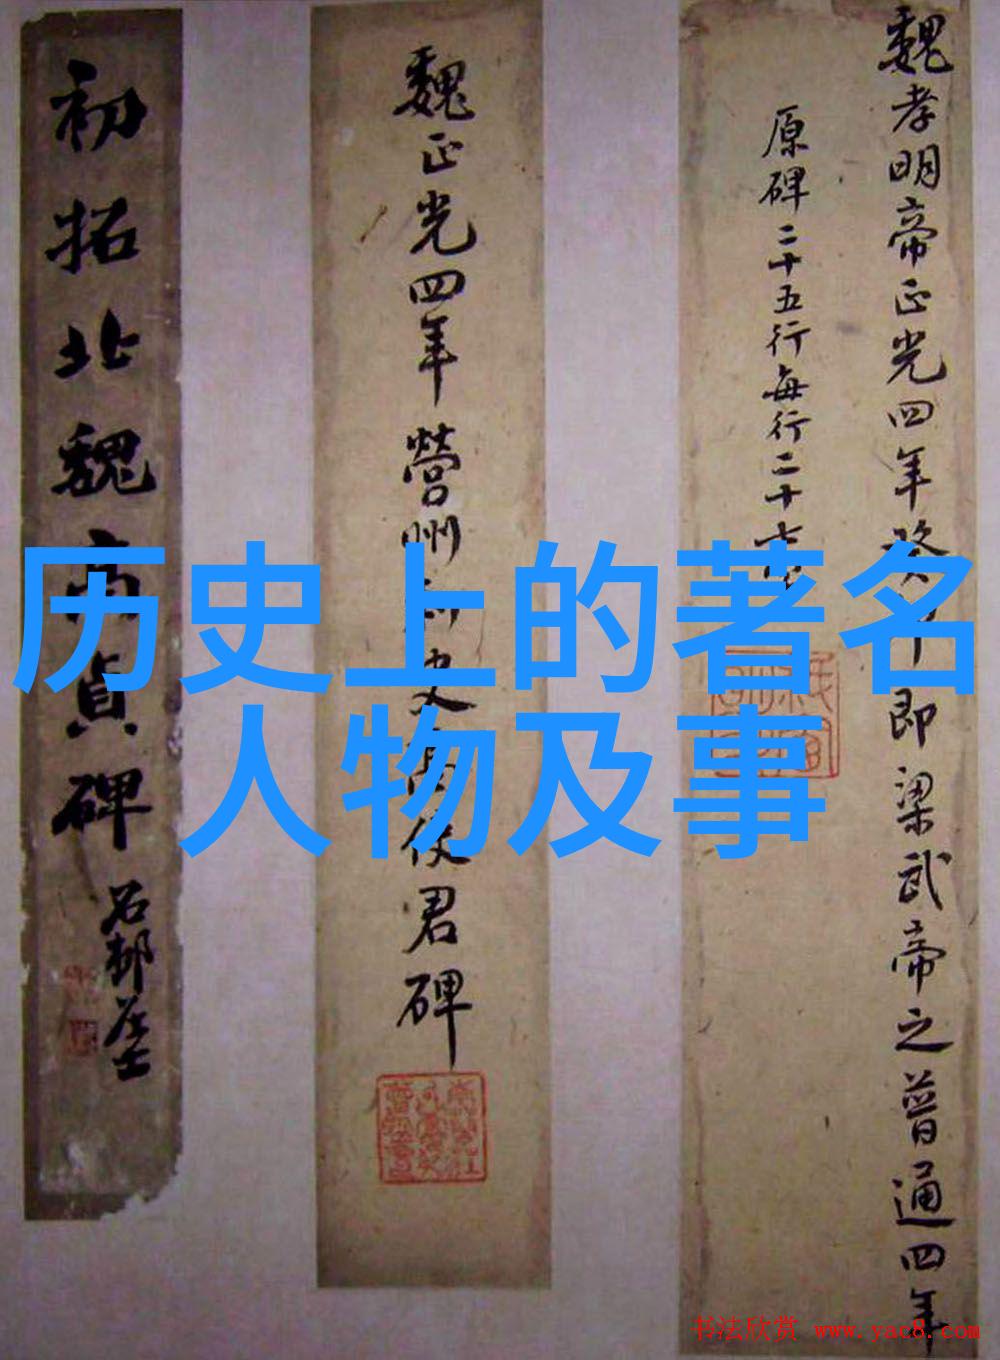 魏孝明帝正光四年癸卯即梁武帝之普通四年
原碑二十五行每行二十
魏正光四年營州刺史高使君碑
初拓北魏高貞碑
石邨居士
历史上的著名
人物及事
书法欣赏 www.yac8.com